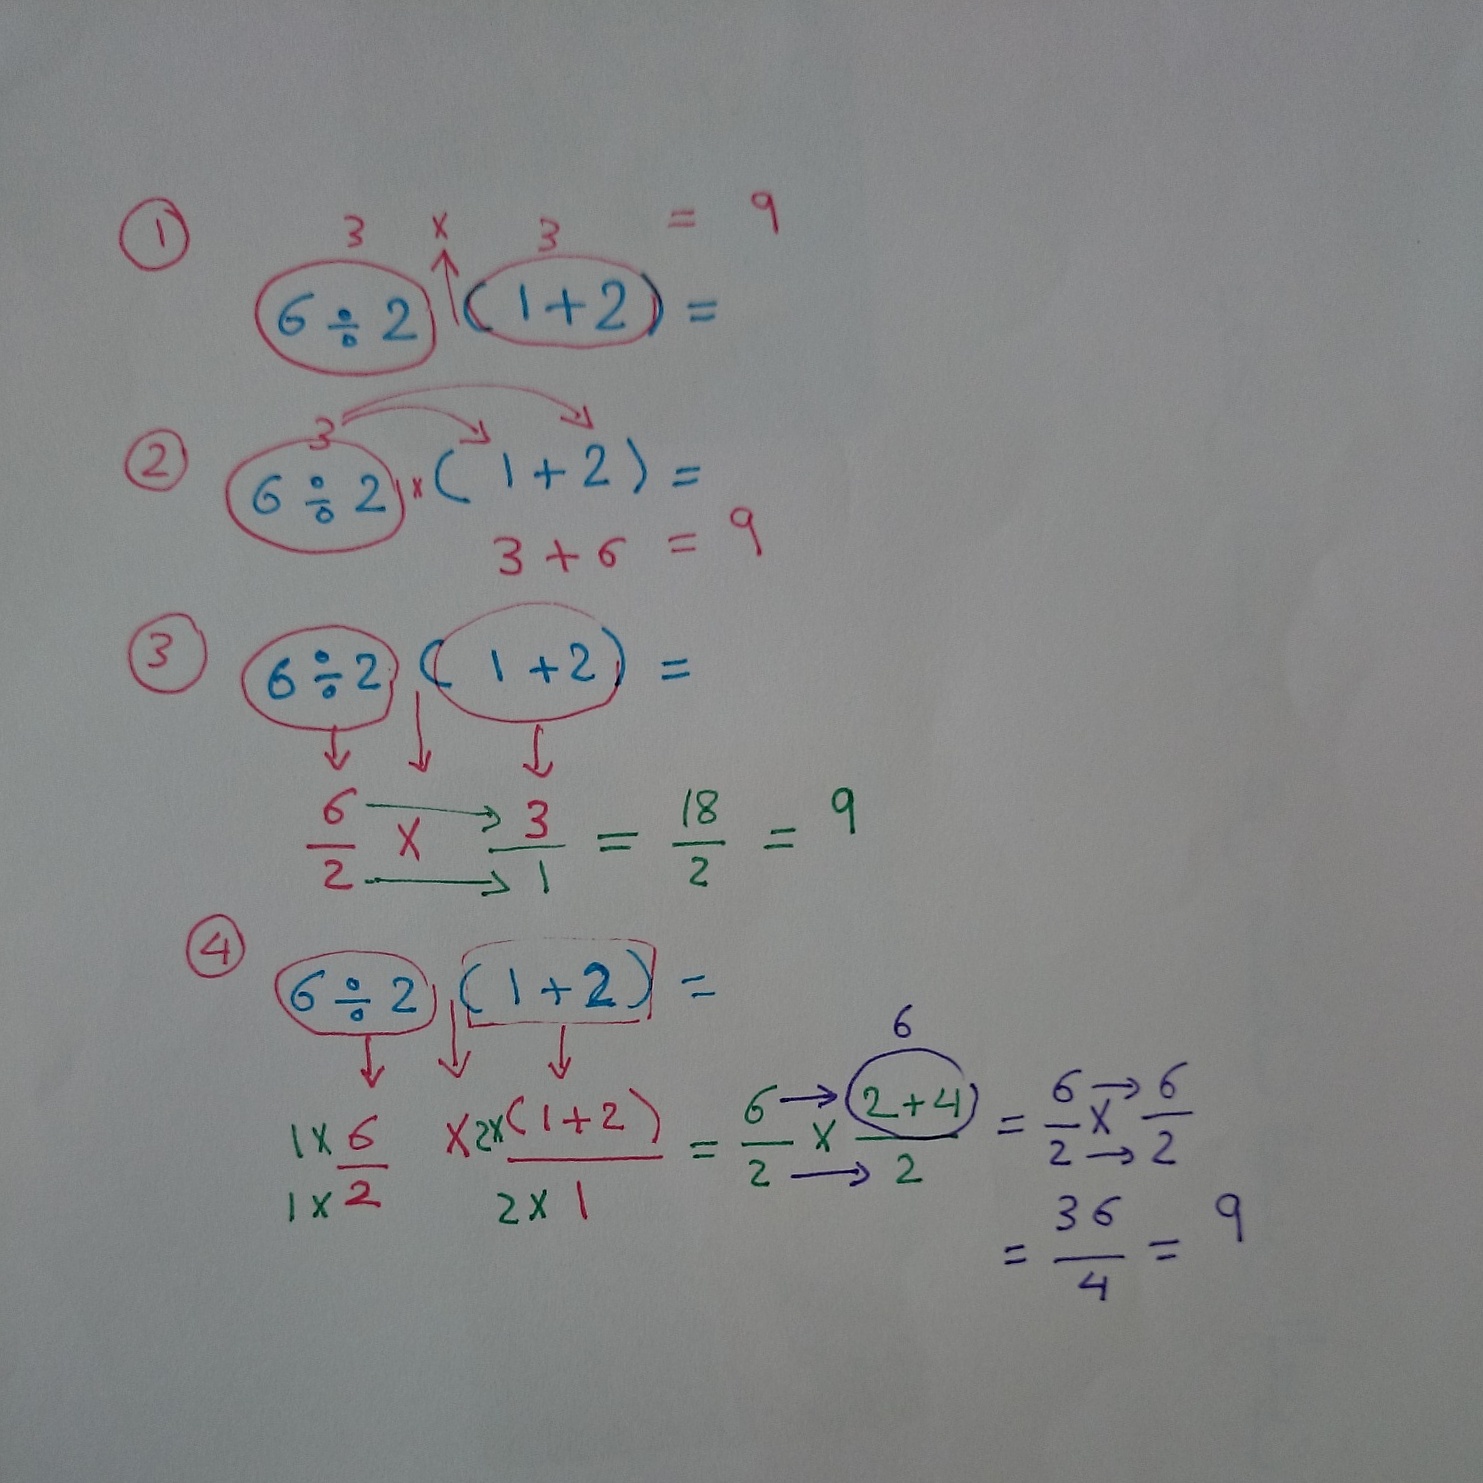 ① 3 x 3 = 9
6 ÷ 2 (1+2) =
② 3
6 ÷ 2 x (1+2) =
3 + 6 = 9
③ 6 ÷ 2 (1+2) =
↓ ↓ ↓
6/2 x → 3/1 = 18/2 = 9
④ 6 ÷ 2 (1+2) =
↓ ↓ ↓
6
1x6/1x2 x 2x(1+2)/2x1 = 6/2 → x 2+4/2 = 6/2 → x 6/2
= 36/4 = 9